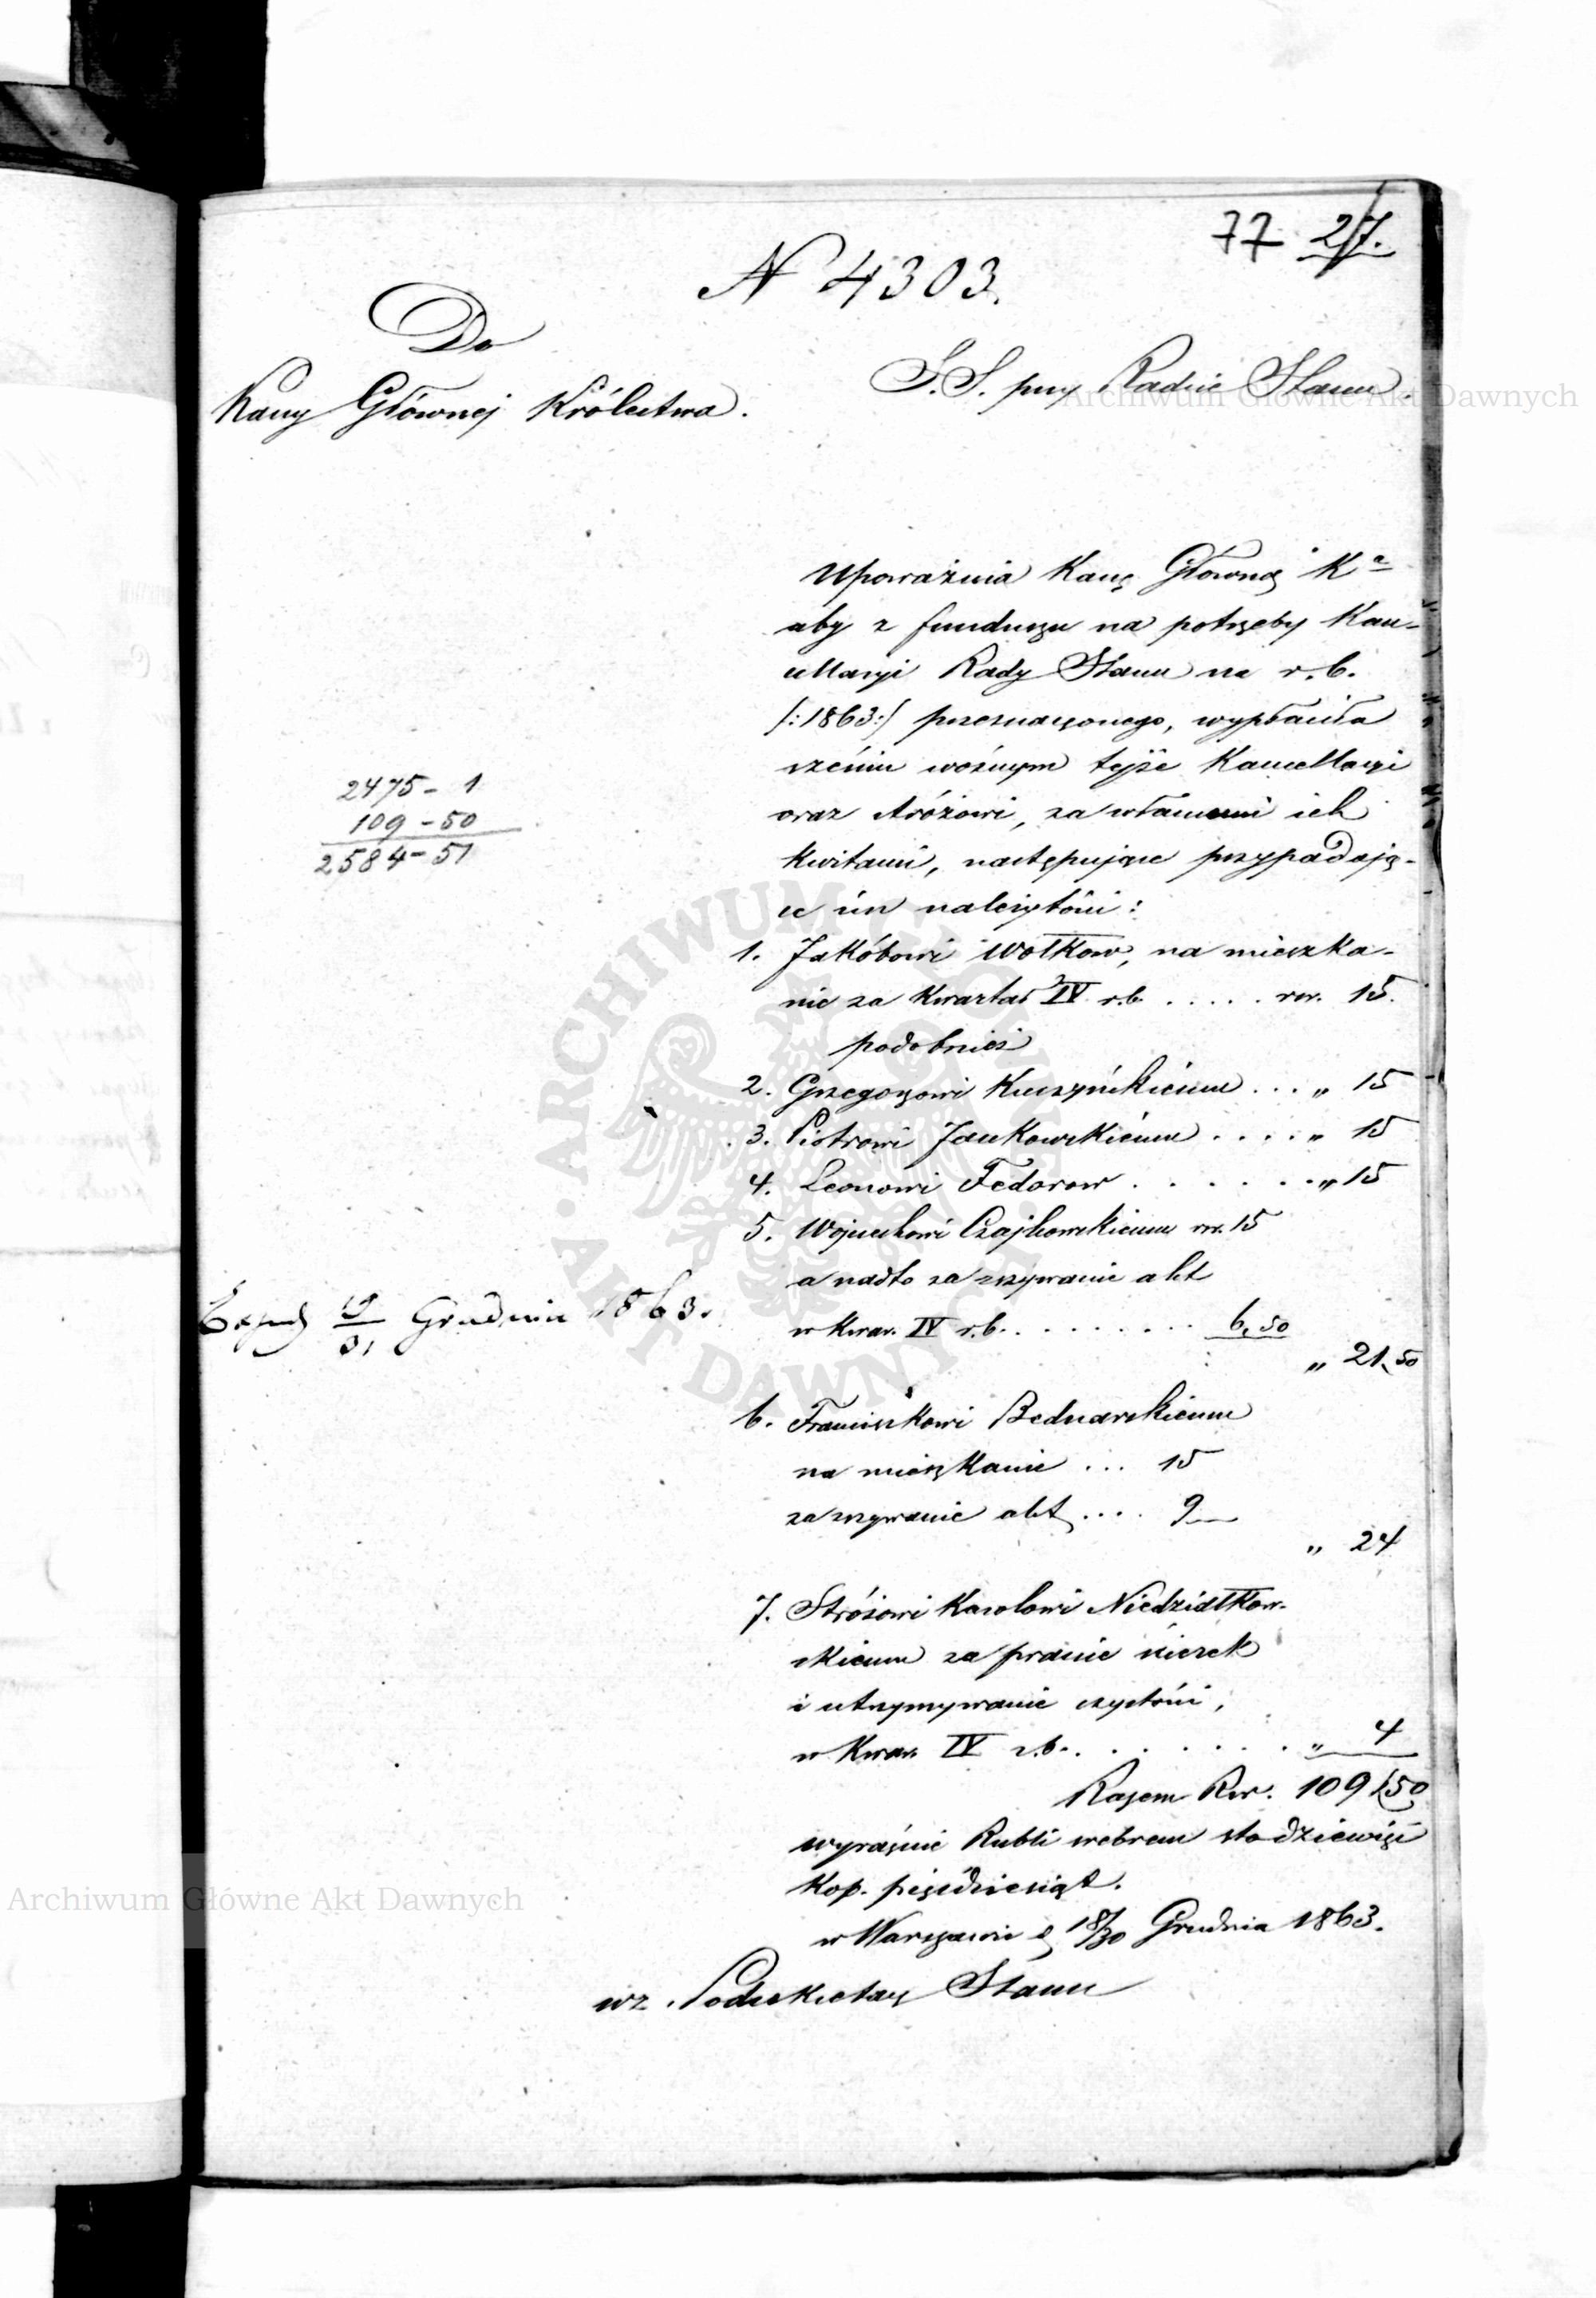 77 27.
N 4303.
Do
Kassy Głównej Królestwa.
S.S. przy Radzie Stanu
Upoważnia Kassę Główną K<sup>a</sup>
aby z funduszu na potrzeby Kan-
cellaryi Rady Stanu na r. b.
/:1863:/ przeznaczonego, wypłaciła
sześciu woźnym tejże Kancellaryi
oraz stróżowi, za własnemi ich
kwitami, następujące przypadają-
ce im należytości:
2475 - 1
109 - 50
2584 - 51
1. Jakóbowi Wołkow, na mieszka-
nie za Kwartał IV r.b. ..... rsr. 15.
podobnież
2. Grzegorzowi Kuczyńskiemu ... „ 15
3. Piotrowi Jankowskiemu .... „ 15
4. Leonowi Fedorow ....... „ 15
5. Wojciechowi Czajkowskiemu rsr. 15
a nadto za zszywanie akt
w Kwar. IV r.b. ........ 6,50
„ 21,50
Exped 19/31 Grudnia 1863.
6. Franciszkowi Bednarskiemu
na mieszkanie ... 15
za zszywanie akt .... 9
„ 24
7. Stróżowi Karolowi Niedziałkow-
skiemu za pranie ścierek
i utrzymywanie czystości,
w Kwar. IV r.b. ....... „ 4
Razem Rsr. 109,50
wyraźnie Rubli srebrem sto dziewięć
Kop. pięćdziesiąt.
w Warszawie d 18/30 Grudnia 1863.
wz. Podsekretarz Stanu
Archiwum Główne Akt Dawnych
Archiwum Główne Akt Dawnych
ARCHIWUM GŁÓWNE AKT DAWNYCH